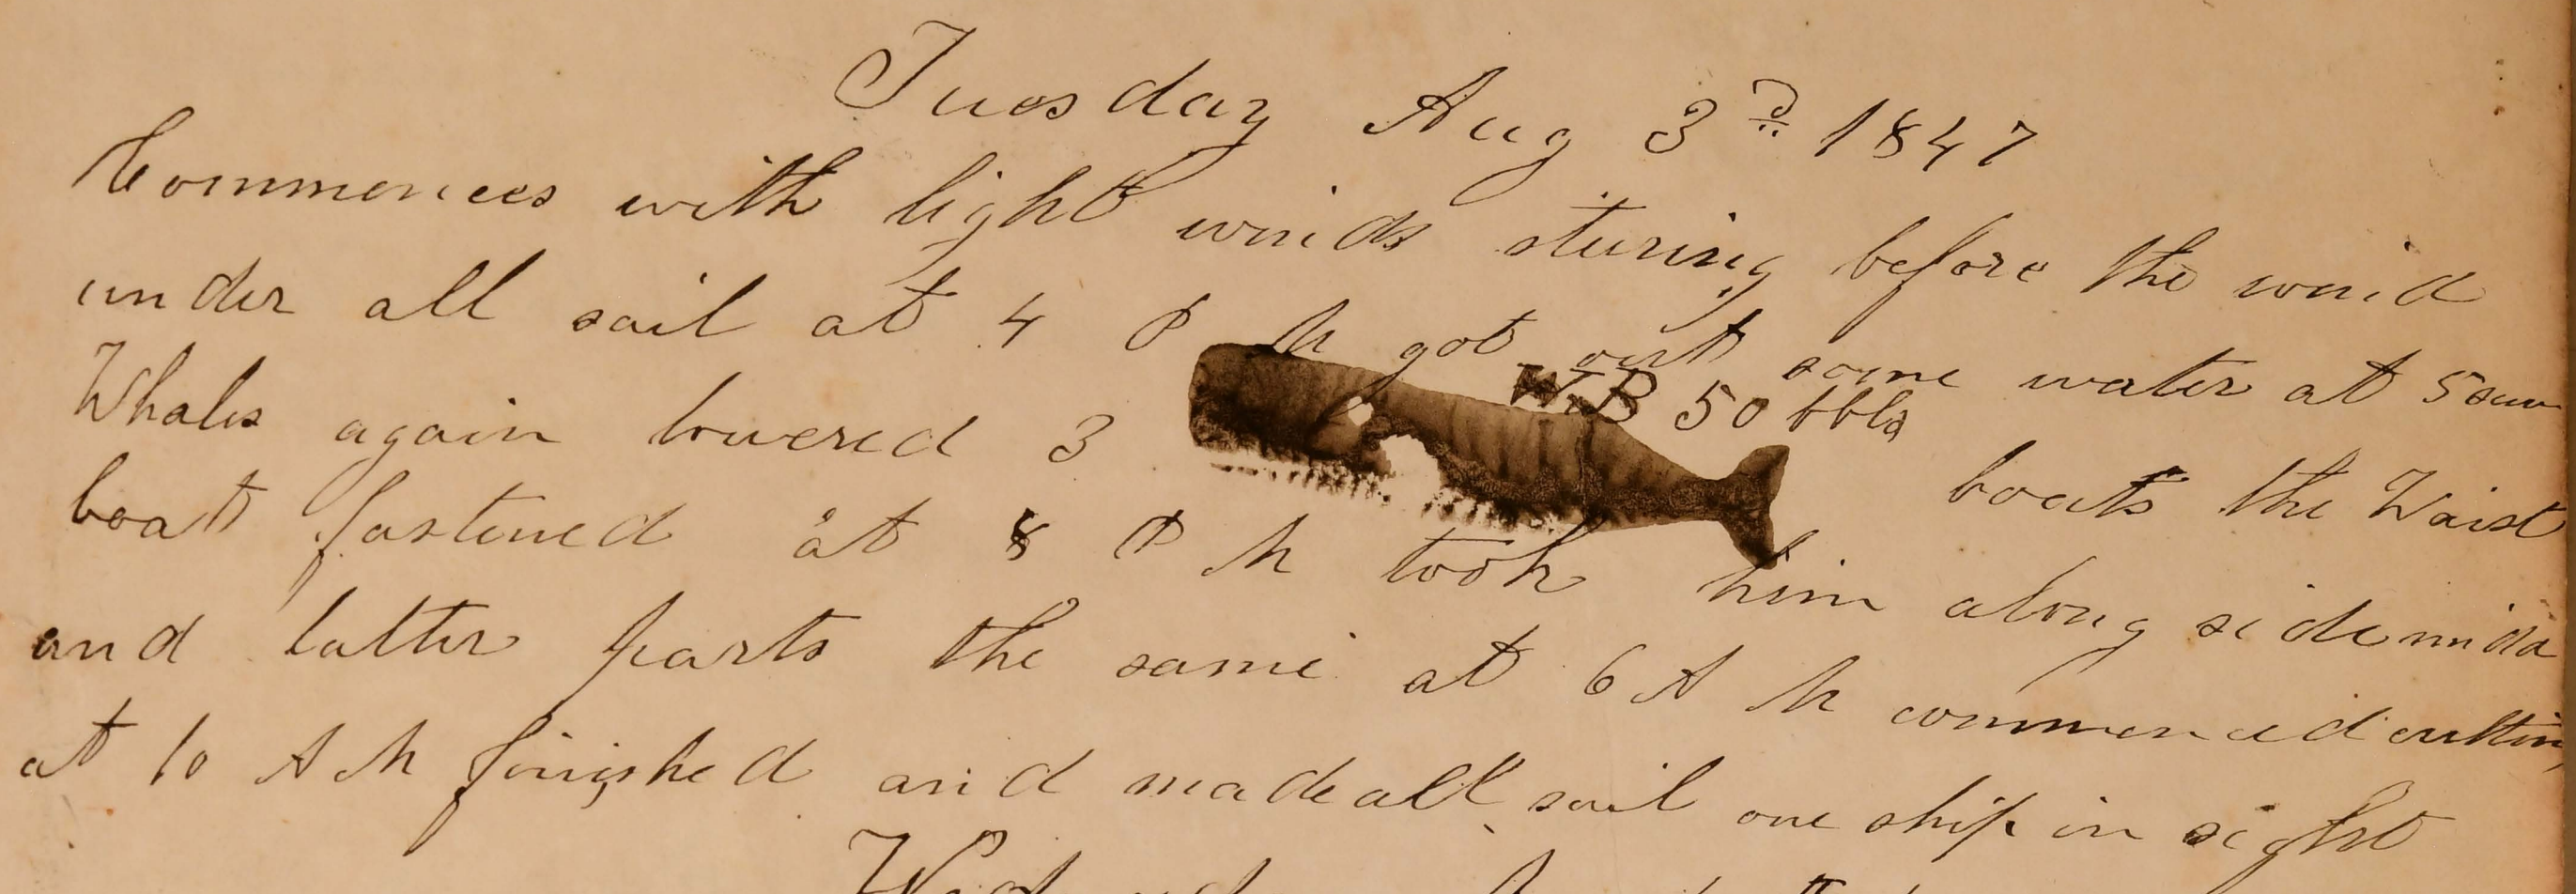 Tuesday Aug 3D 1847
Commences with light winds sturing before the wind
under all sail at 4 P M got out some water at 5 saw
WB 50 bbls
Whales again lowered 3 boats the Waist
boat fastened at 8 P M took him along side midd
and latter parts the same at 6 A M commenced cutting
at 10 A M finished and made all sail one ship in sight